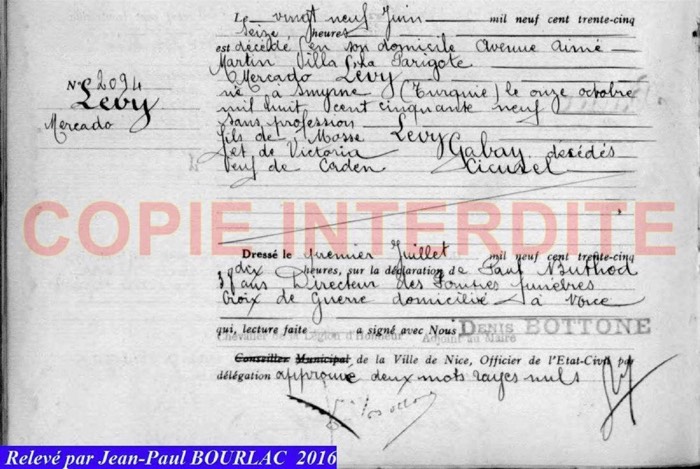 Le vingt neuf Juin mil neuf cent trente-cinq
Seize heures
est décédé en son domicile Avenue Aimé
Martin Villa Parigote
Mercado Levy
né à Smyrne (Turquie) le onze octobre
mil huit cent cinquante neuf
sans profession
fils de Mosse Levy
et de Victoria Gabay décédés
veuf de Caden Cicurel
N° 2094
Levy
Mercado
COPIE INTERDITE
Dressé le premier Juillet mil neuf cent trente-cinq
dix heures, sur la déclaration de Paul Buthod
ans Directeur des Pompes funèbres
Croix de Guerre domicilié à Nice
qui, lecture faite a signé avec Nous DENIS BOTTONE
Chevalier de la Légion d'Honneur Adjoint au Maire
Conseiller Municipal de la Ville de Nice, Officier de l'Etat-Civil par
délégation approuvé deux mots rayés nuls
Relevé par Jean-Paul BOURLAC 2016